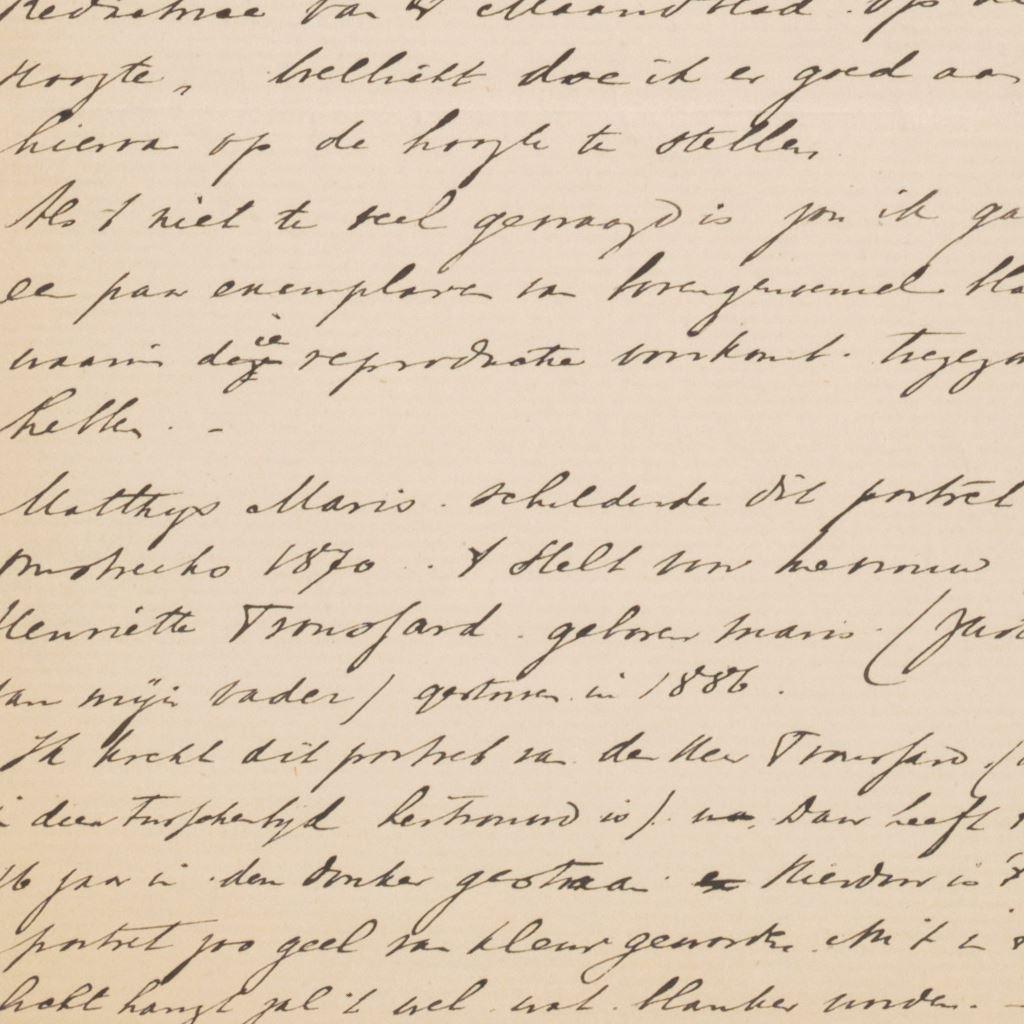 Redactrice van 't Maandblad op de
Hoogte, wellicht doe ik er goed aan
hiervan op de hoogte te stellen
Als 't niet te veel gevraagd is zou ik ga
een paar exemplaren van bovengenoemd bla
waarin deze ie reproductie voorkomt. toegezon
hebben. -
Matthys Maris. schilderde dit portret
omstreeks 1870. 't Stelt voor mevrouw
Henriëtte Tronsfard. geboren Maris. (
van mijn vader) gestorven in 1886.
Ik kocht dit portret van den Heer Tronsfard (
in dien tusschentijd hertrouwd is).. Daar heeft
16 jaar in den donker gestaan Hierdoor is 't
portret zoo geel van kleur geworden. Als 't in 't
licht hangt zal 't wel wat blanker worden. -